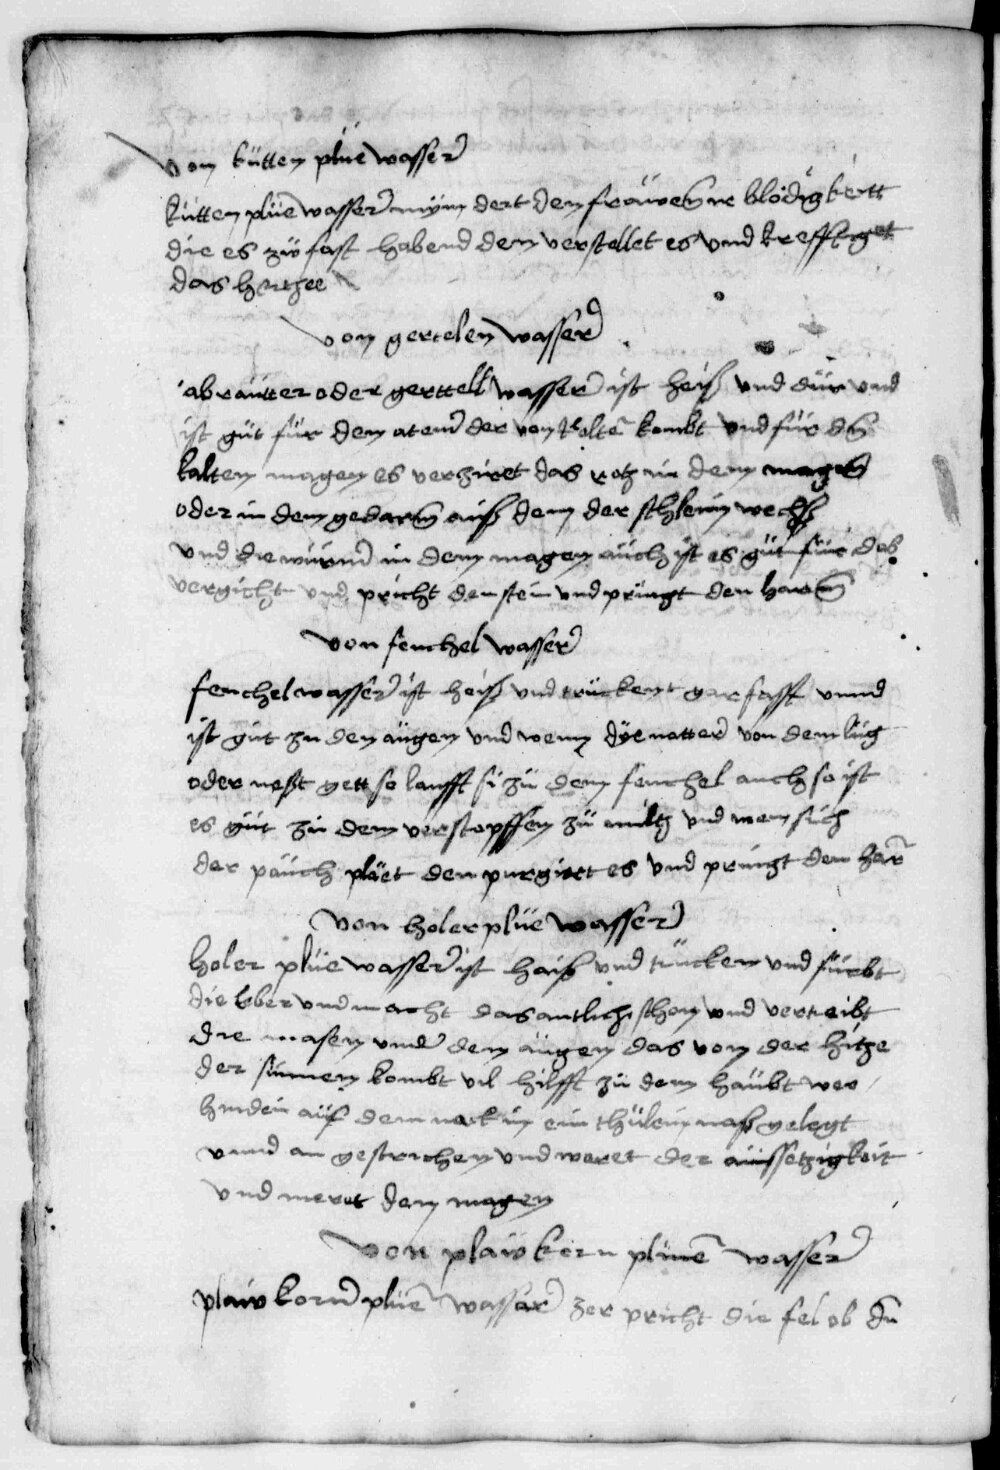 Von kütten plüe wasser
kütten plüe wasser myndert den fraüwen ir blödigkeitt
die es zü fast habend den verstellet es vnd krefftiget
das hertzee
von gertelen wasser
abraütten oder gerttell wasser ist heiß vnd dürr vnd
ist güt für den atem der von kelte kombt vnd für den
kalten magen es verziret das rotz in dem magen
oder in dem gedarm auß dem der schleim wechst
vnd die würm in dem magen aüch ist es güt für das
vergicht vnd pricht den stein vnd pringt den harm
von fenchel wasser
fenchel wasser ist heiß vnd trückent gar fasst vnnd
ist güt zu den aügen vnd wenn dye natter von dem lüg
oder nest gett so laufft si zü dem fenchel auch so ist
es güt zü dem verstopfften zü miltz vnd wem sich
der paüch pläet den purgirt es vnd pringt den har
von holer plüe wasser
holer plüe wasser ist haiß vnd trücken vnd fürbt
die leber vnd macht das antlich schon vnd vertreibt
die masen vnder den aügen das von der hitze
der sünnen kombt vil hilfft zü dem haübt wee
hinden aüf dem nack in ein thülein naß gelegt
vnnd an gestrichen vnd weret der aüssetzigkeit
vnd meret den magen
Von plaw korn plüme wasser
plaw korn plüe wasser zerpricht die fel ob den